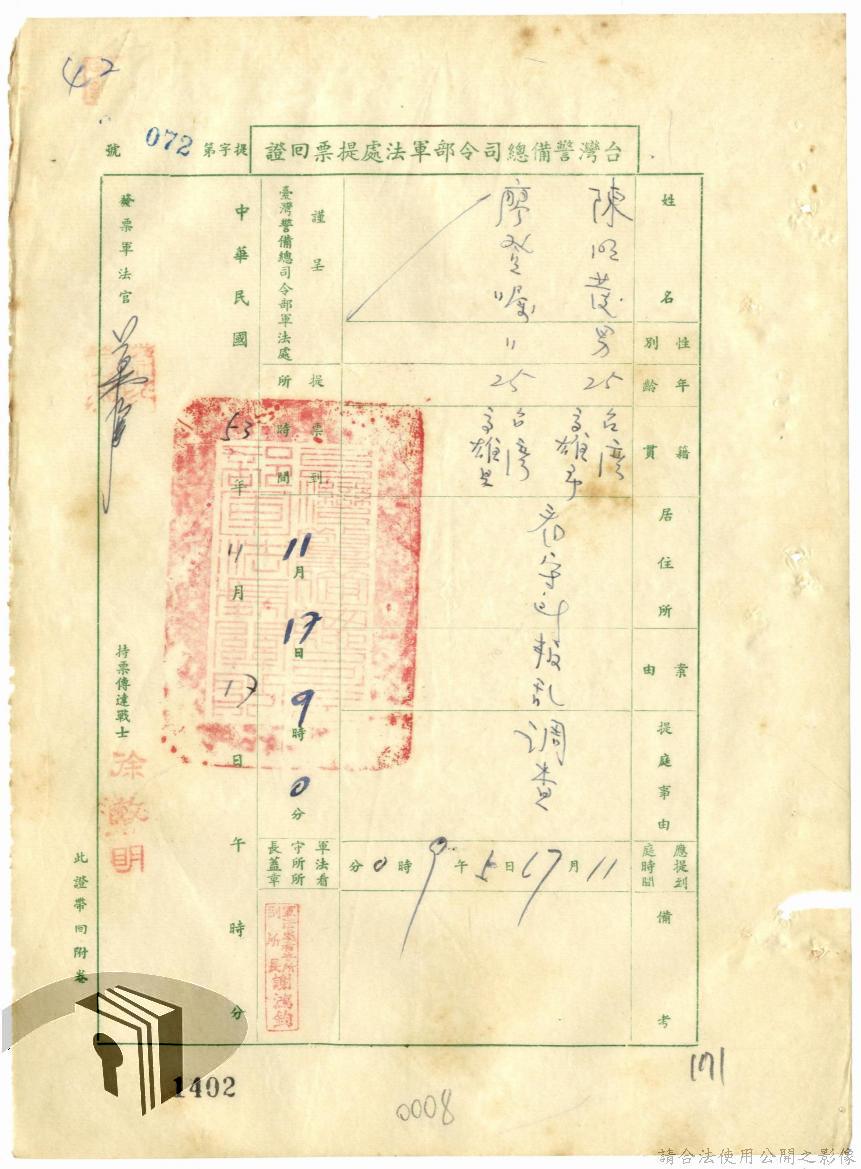 42
台灣警備總司令部軍法處提票回證
提字第 072 號
姓名
陳明發
廖登囑
性別
男
〃
年齡
25
25
籍貫
台灣高雄市
台灣高雄县
居住所
案由
叛乱
提庭事由
调查
應提到庭時間
11月17日 午9時0分
備考
謹呈
臺灣警備總司令部軍法處
提票到所時間
11月17日9時0分
軍法看守所所長蓋章
副所長謝鴻鈞
中華民國53年11月17日 午 時 分
發票軍法官
持票傳達戰士
徐敬明
此證帶回附卷
1402
0008
171
請合法使用公開之影像